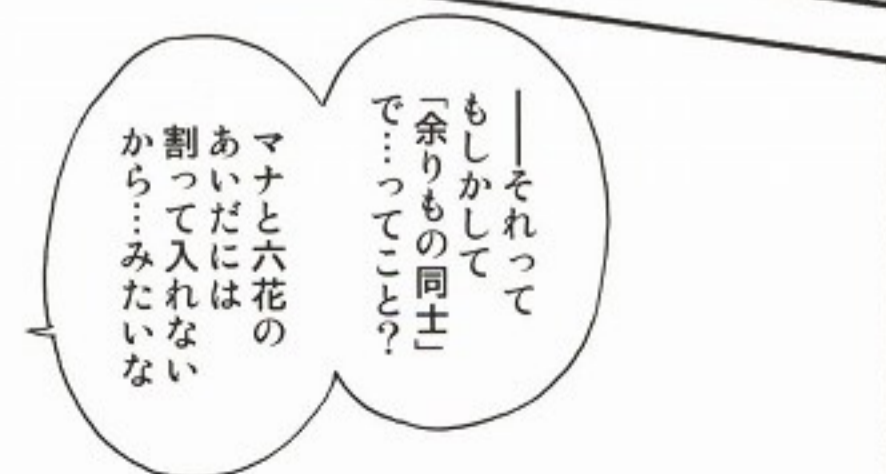 ――それって
もしかして
「余りもの同士」
で…ってこと？
マナと六花の
あいだには
割って入れない
から…みたいな